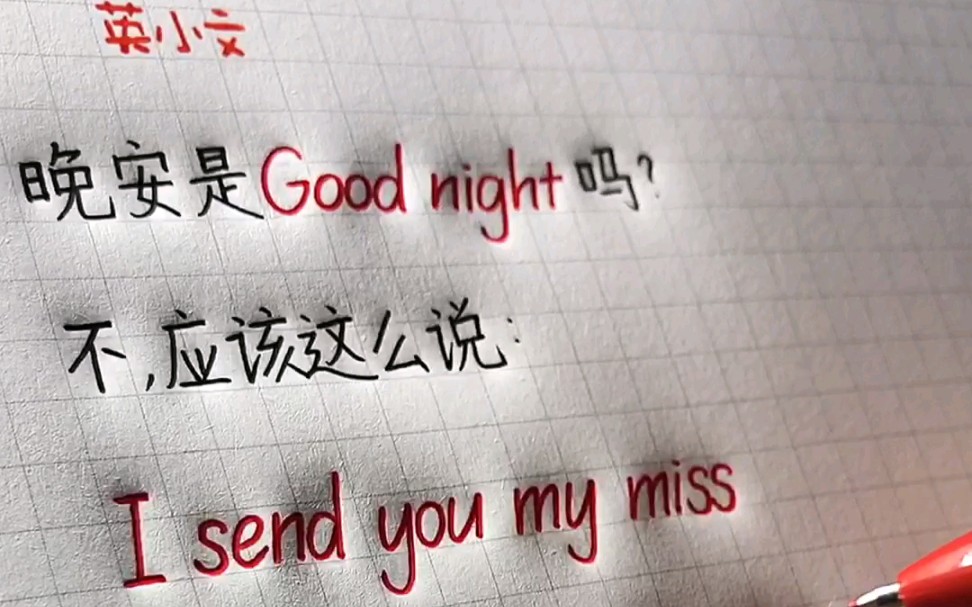 英小文
晚安是Good night吗?
不,应该这么说:
I send you my miss